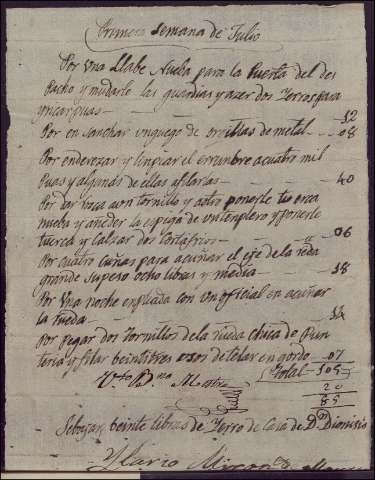 Primera Semana de Julio
Por Una Llabe Nueba para la Puerta del des
pacho y mudarle las guardias y azer dos Yerros para
yncar puas — 12
Por en sanchar un guego de orillas de metal — 08
Por enderezar y limpiar el errumbre a cuatro mil
Puas y algunas de ellas afilarlas — 40
Por dar rosca a un tornillo y a otro ponerle tuerca
nueba y añeder la espiga de un templero y ponerle
tuerca y Calzar dos Cortafrios — 06
Por cuatro Cuñas para acuñar el eje de la rueda
grande su peso ocho libras y media — 18
Por Una noche empleada con un oficial en acuñar
la Rueda — 14
Por pegar dos Tornillos de la Rueda chica de Pun
teria y filar beintitres usos de telar en gordo — 07
Total — 105
20
85
Se bajar beinte libras de Yerro de Casa de Dn Dionisio
Ylario